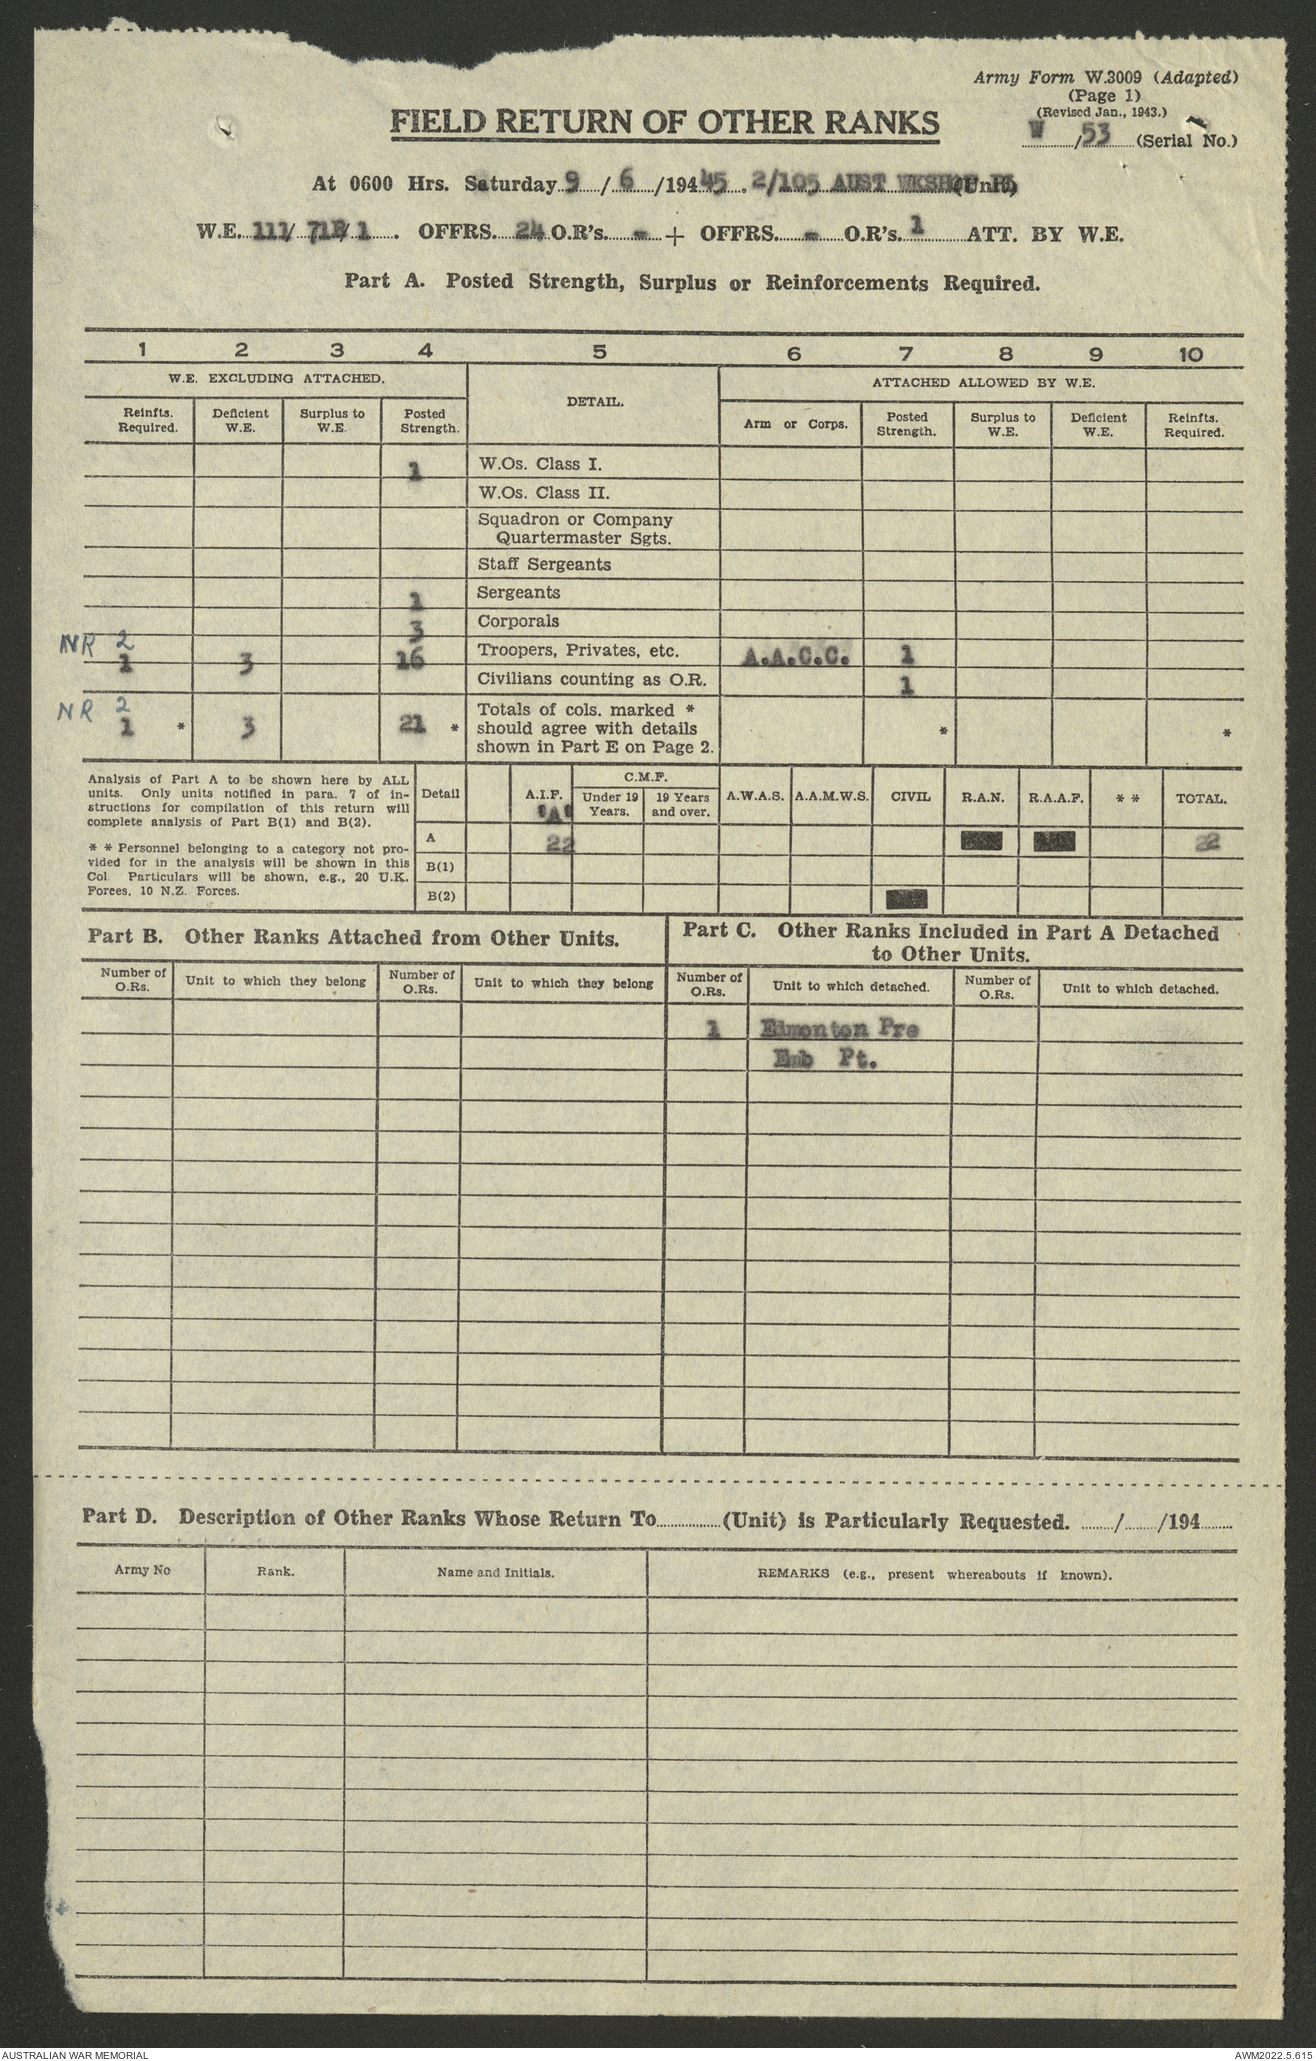 Army Form W.3009 (Adapted)
(Page 1)
(Revised Jan., 1943.)
W/53 (Serial No.)
FIELD RETURN OF OTHER RANKS
At 0600 Hrs. Saturday 9/6/194 45. 2/105 AUST WKSHOP (Unit)
W.E. 111/ /1. OFFRS. 24 O.R's. - + OFFRS. - O.R's. 1 ATT. BY W.E.
Part A. Posted Strength, Surplus or Reinforcements Required.
1 2 3 4 5 6 7 8 9 10
W.E. EXCLUDING ATTACHED. DETAIL. ATTACHED ALLOWED BY W.E.
Reinfts. Required. Deficient W.E. Surplus to W.E. Posted Strength. Arm or Corps. Posted Strength. Surplus to W.E. Deficient W.E. Reinfts. Required.
1 W.Os. Class I.
W.Os. Class II.
Squadron or Company
Quartermaster Sgts.
Staff Sergeants
1 Sergeants
3 Corporals
NR 2
1 3 16 Troopers, Privates, etc. A.A.C.C. 1
Civilians counting as O.R. 1
NR 2
1 * 3 21 * Totals of cols. marked *
should agree with details * *
shown in Part E on Page 2.
Analysis of Part A to be shown here by ALL
units. Only units notified in para. 7 of in-
structions for compilation of this return will
complete analysis of Part B(1) and B(2).
* * Personnel belonging to a category not pro-
vided for in the analysis will be shown in this
Col Particulars will be shown, e.g., 20 U.K.
Forces, 10 N.Z. Forces.
C.M.F.
Detail A.I.F. Under 19 Years. 19 Years and over. A.W.A.S. A.A.M.W.S. CIVIL R.A.N. R.A.A.F. * * TOTAL.
"A"
A 22 22
B(1)
B(2)
Part B. Other Ranks Attached from Other Units.
Part C. Other Ranks Included in Part A Detached
to Other Units.
Number of O.Rs. Unit to which they belong Number of O.Rs. Unit to which they belong Number of O.Rs. Unit to which detached. Number of O.Rs. Unit to which detached.
1 Edmonton Pre
Emb Pt.
Part D. Description of Other Ranks Whose Return To............(Unit) is Particularly Requested. ....../....../194......
Army No Rank. Name and Initials. REMARKS (e.g., present whereabouts if known).
AUSTRALIAN WAR MEMORIAL AWM2022.5.615